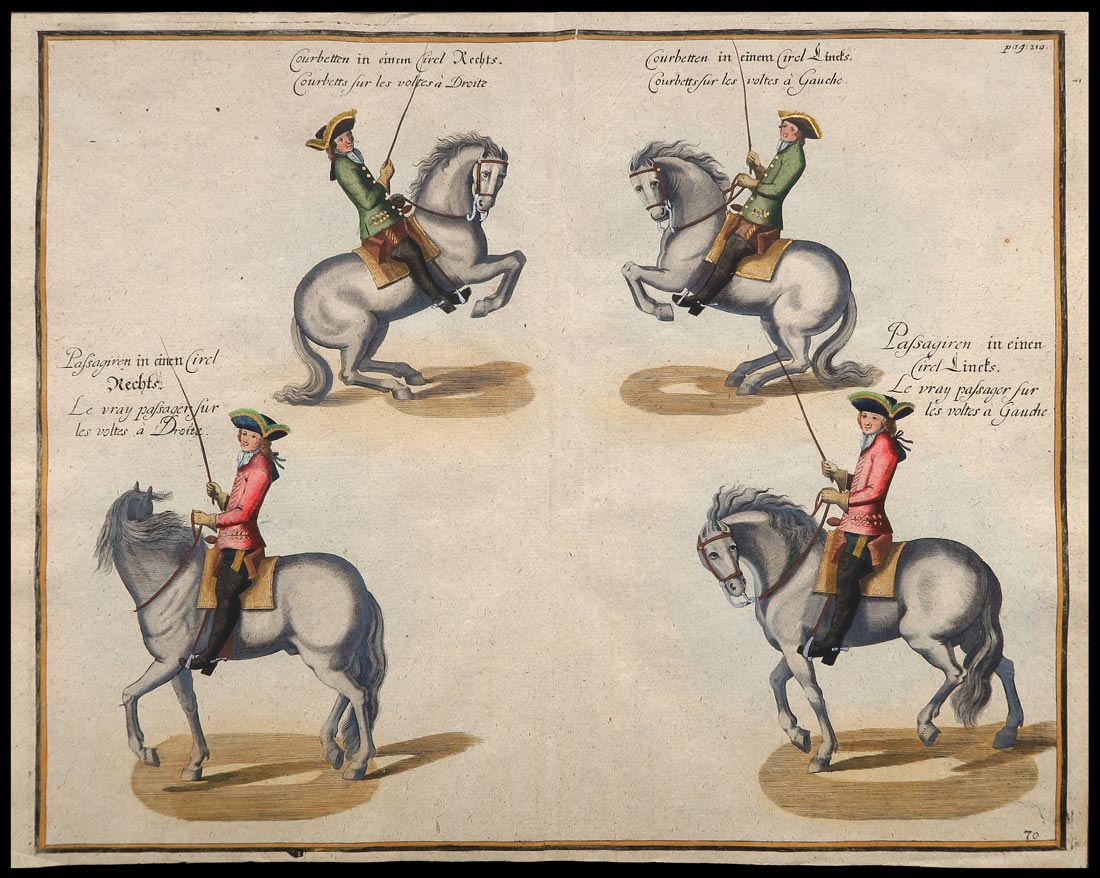 Courbetten in einem Circl Rechts.
Courbetts sur les voltes à Droite
Courbetten in einem Circl Lincks.
Courbetts sur les voltes à Gauche.
pag: 210.
Passagiren in einen Circl
Rechts.
Le vray passager sur
les voltes à Droite.
Passagiren in einen
Circl Lincks.
Le vray passager sur
les voltes à Gauche
70